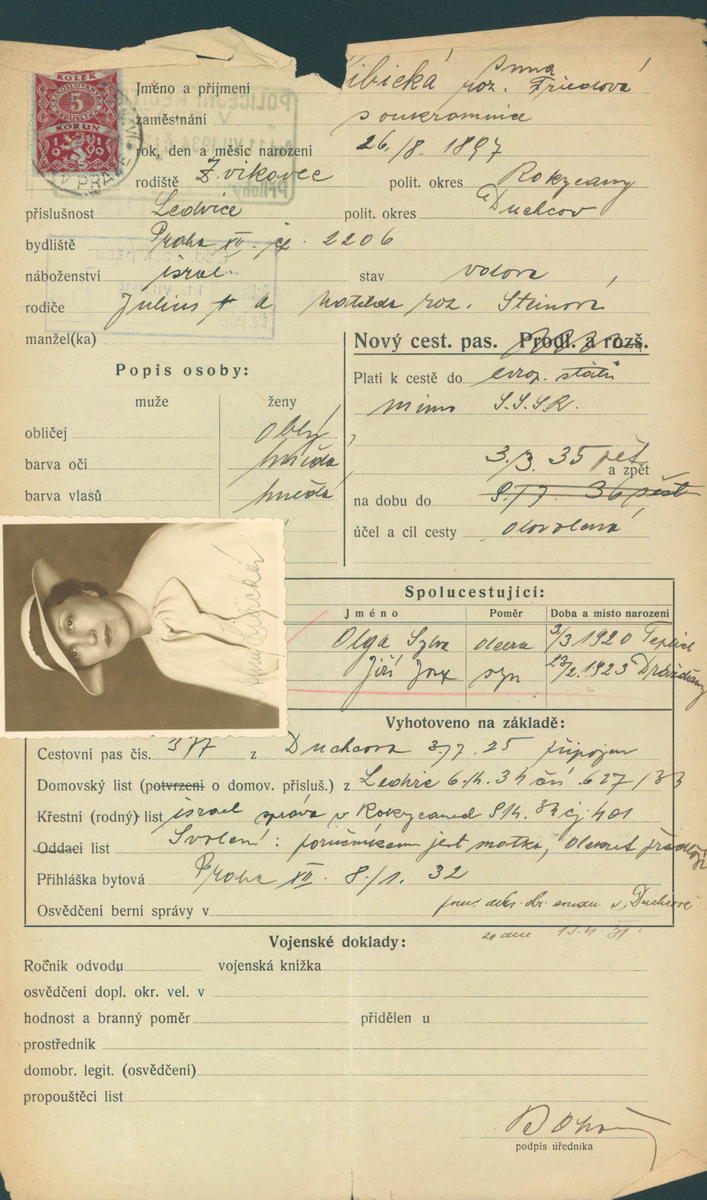 KOLEK
5
KORUN
V PRAZE
Anna
Jméno a přijmení roz. Friedová
zaměstnání soukromnice
rok, den a měsíc narození 26./8. 1897
rodiště Zvikovec polit. okres Rokycany
příslušnost Ledvice polit. okres Duchcov
bydliště Praha XII. čp. 2206
náboženství israel. stav vdova
rodiče Julius a Matilda roz. Steinová
manžel(ka)
Nový cest. pas. Prodl. a rozš.
Popis osoby:
Platí k cestě do evrop. států
muže ženy
mimo S.S.S.R.
obličej oblý
barva očí hnědá
3./3. 35 a zpět
barva vlasů hnědá
na dobu do
účel a cíl cesty dovolená
Spolucestující:
Jméno Poměr Doba a místo narození
Olga Sylva dcera 3/3 1920 Teplice
Jiří syn 23/2. 1923 Drážďany
Vyhotoveno na základě:
Cestovní pas čís. 377 z Duchcova 3./7. 25 připojen
Domovský list (potvrzení o domov. přísluš.) z Ledvic 6.4.34 čís. 627/33
Křestní (rodný) list israel správa v Rokycanech 9.4.34 čj. 401
Oddací list Svolení: poručníkem jest matka,
Přihláška bytová Praha XII. 8./1. 32
Osvědčení berní správy v v Duchcově
ze dne
Vojenské doklady:
Ročník odvodu vojenská knížka
osvědčení dopl. okr. vel. v
hodnost a branný poměr přidělen u
prostředník
domobr. legit. (osvědčení)
propouštěcí list
podpis úředníka